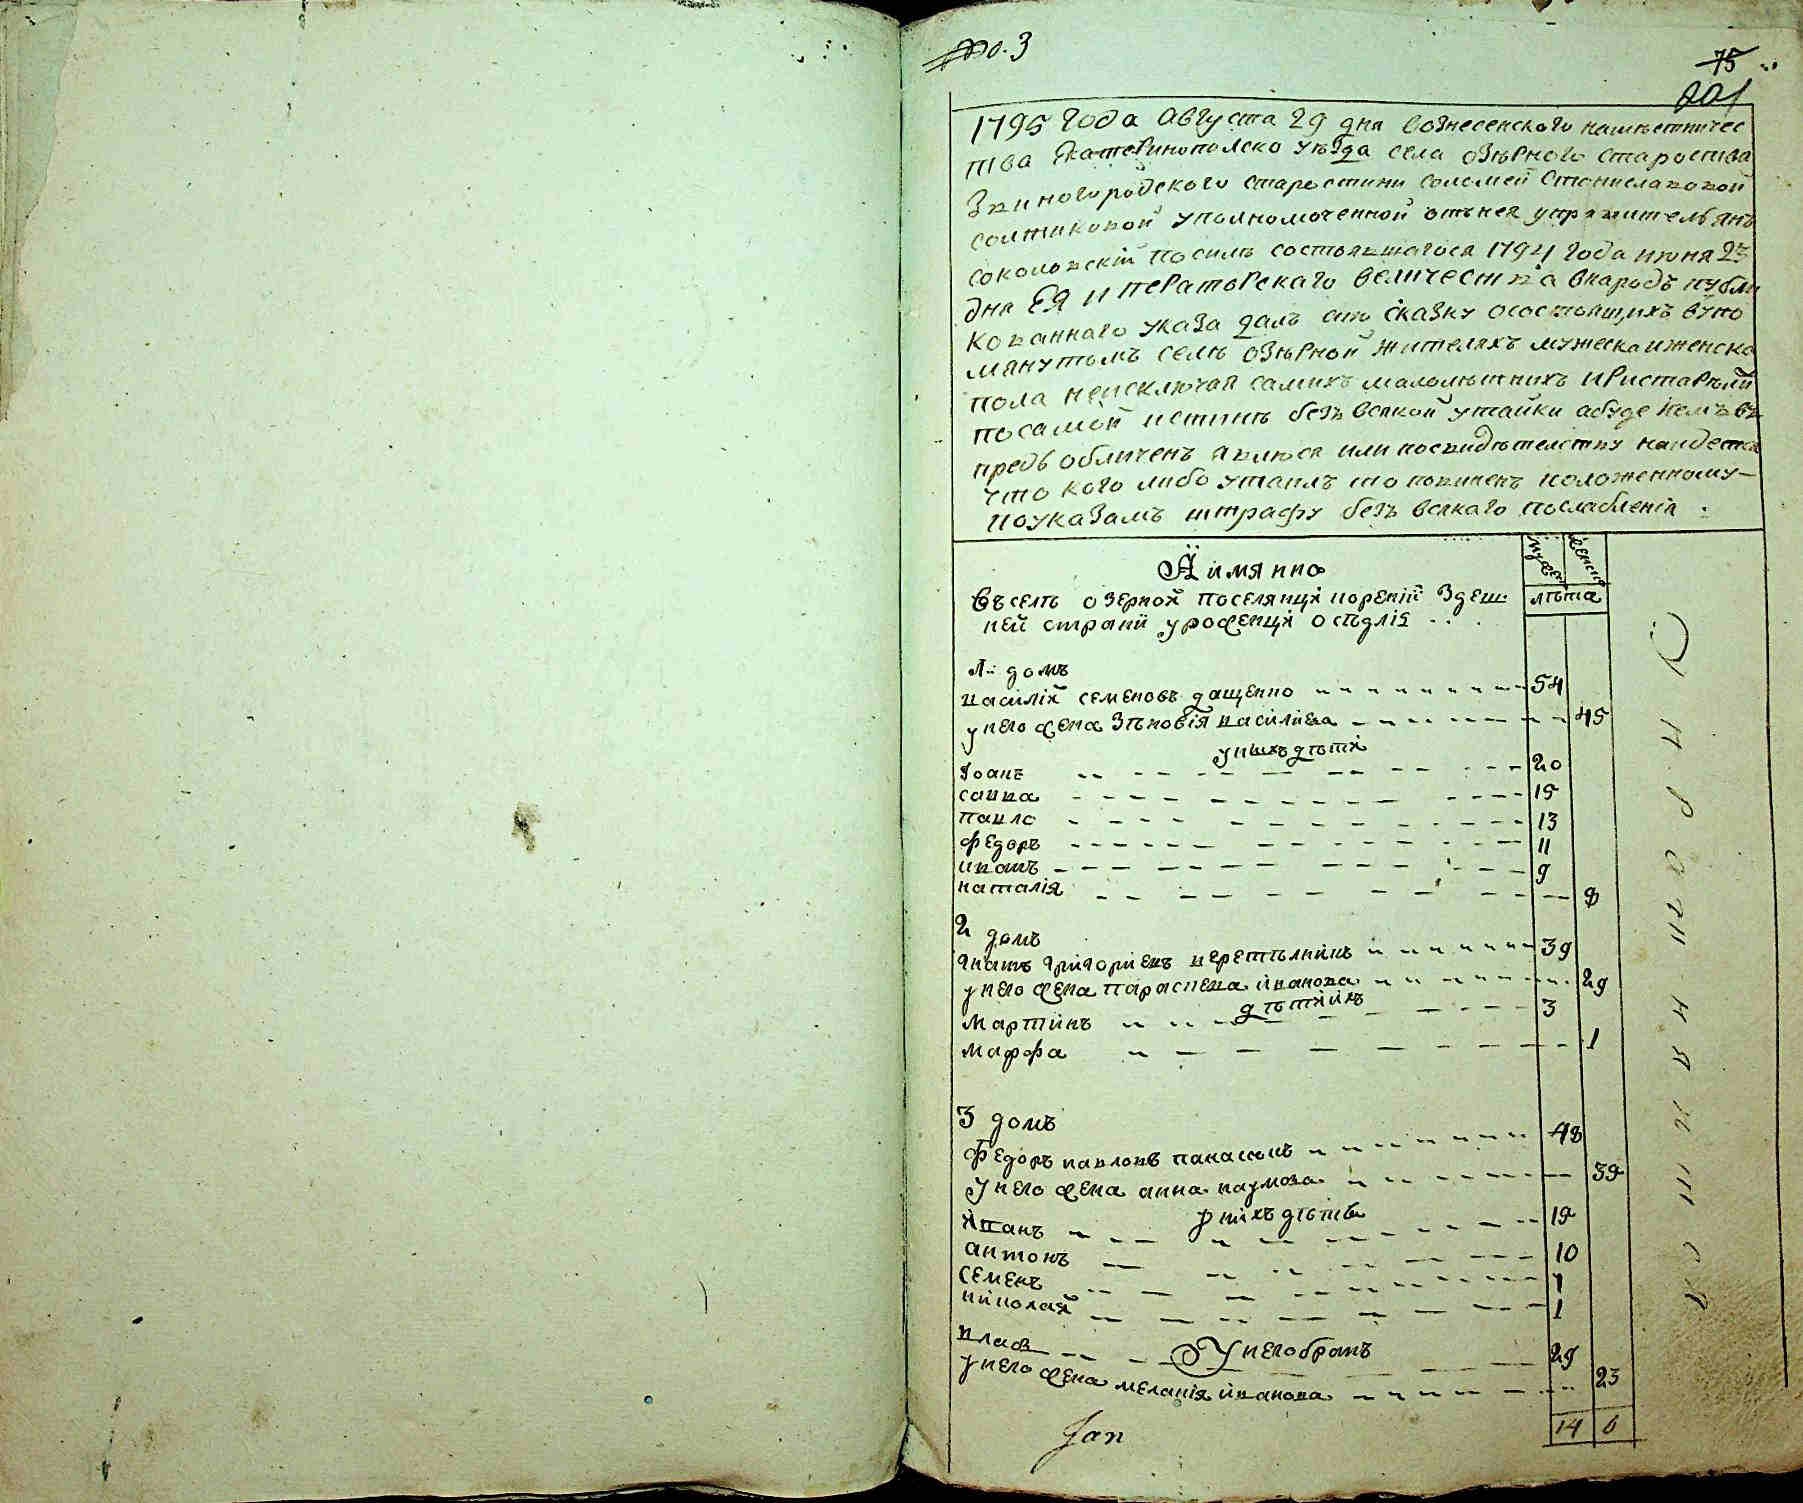 №. 3
75
201
1795 года августа 29 дня вознесенского намѣстничес
тва Екатеринополско уѣзда села озѣрного староства
Звиногородского старостини соломей Станиславовой
солтиковой уполномоченной отънея управитель янъ
соколовскій посилѣ состоявшагося 1794 года июня 23
дня ЕЯ императорскаго величества внародъ публи
кованнаго указа далъ сию сказку осостоящихъ вупо
мянутомъ селѣ озѣрной жителяхъ мужеска иженска
пола неисключая самихъ малолѣтнихъ ипристарѣлй
посамой истиннѣ безъ всякой утайки абуде кемъ въ
предь обличенъ явлюся или посвидѣтелству наидется
что кого либо утаилъ то повиненъ положенному
поуказамъ штрафу безъ всякаго послабленія
Аимянно
мужеск
женска
въселѣ озерной поселянци здеш
лѣта
ней страни уроженци осѣдлія
1й домъ
василій семеновъ дащенко 54
унего жена Зѣновія василиева 45
унихъ дѣти
Іоанъ 20
савка 15
павло 13
федоръ 11
игнатъ 9
наталія 8
2 домъ
игнатъ григориевъ веретѣлникъ 39
унего жена параскева иванова 29
дѣтиихъ
мартинъ 3
марфа 1
3 домъ
федоръ павловъ панасюкъ 48
унего жена анна наумова 39
унихъ дѣтѣ
степанъ 19
антонъ 10
семенъ 1
николай 1
Унего братъ
влас 29
унего жена меланія иванова 23
14 6
Jan